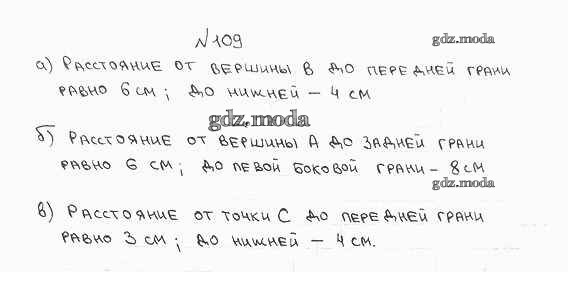 №109
gdz.moda
а) Расстояние от вершины В до передней грани
равно 6 см; до нижней – 4 см
gdz.moda
б) Расстояние от вершины А до задней грани
равно 6 см; до левой боковой грани – 8 см
gdz.moda
в) Расстояние от точки С до передней грани
равно 3 см; до нижней – 4 см.